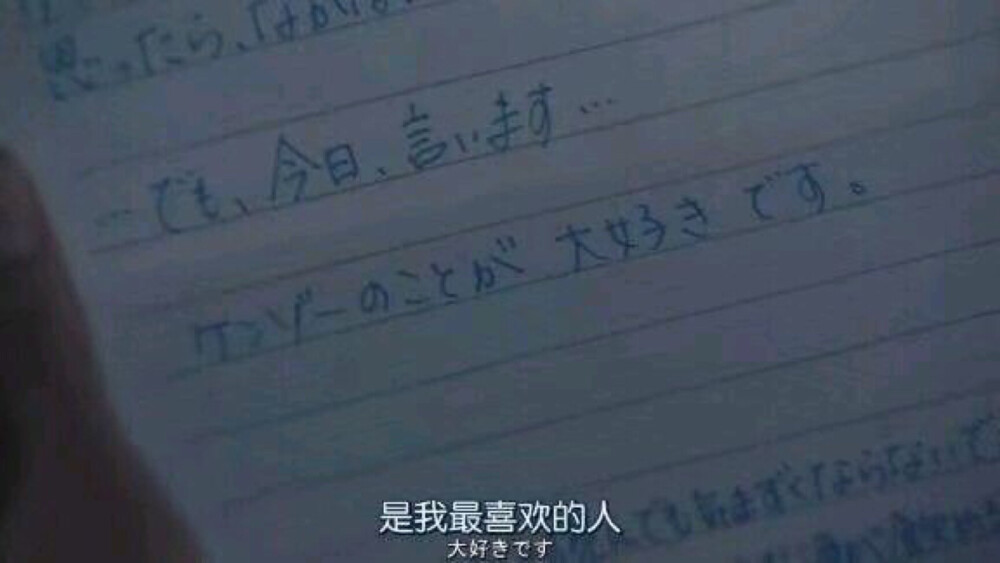 思ったら、
…でも、今日、言います…
ケンゾーのことが 大好きです。
ても気まずくならないで
是我最喜欢的人
大好きです